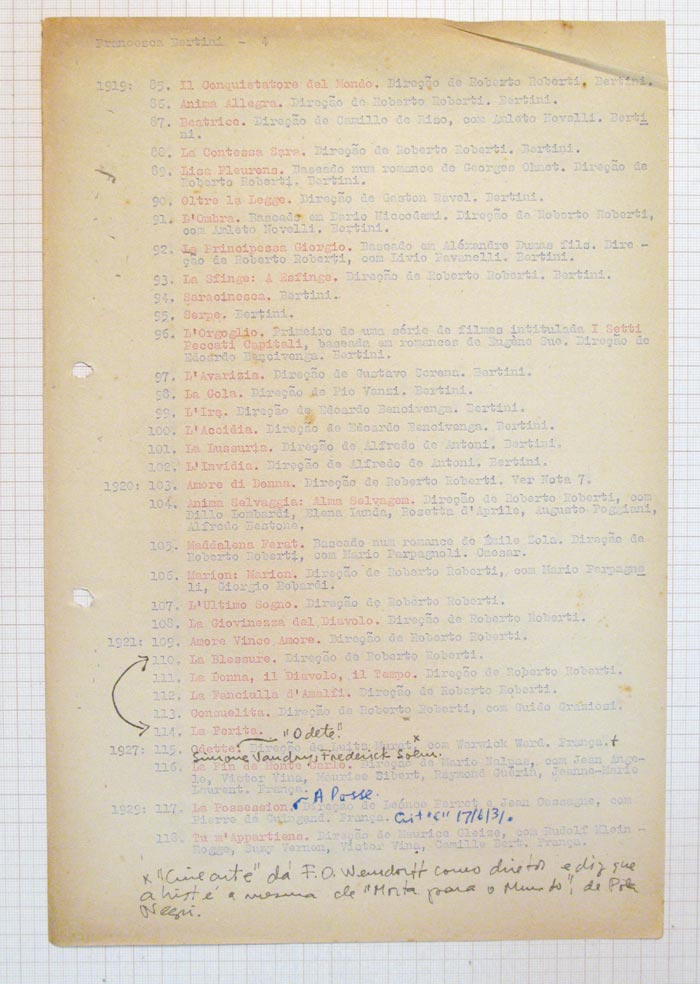 Francesca Bertini - 4
1919: 85. Il Conquistatore del Mondo. Direção de Roberto Roberti. Bertini.
86. Anima Allegra. Direção de Roberto Roberti. Bertini.
87. Beatrice. Direção de Camillo de Riso, com Amleto Novelli. Berti
ni.
88. La Contessa Sara. Direção de Roberto Roberti. Bertini.
89. Lisa Fleurens. Baseado num romance de Georges Ohnet. Direção de
Roberto Roberti. Bertini.
90. Oltre la Legge. Direção de Gaston Ravel. Bertini.
91. L'Ombra. Baseado em Dario Niccodemi. Direção de Roberto Roberti,
com Amleto Novelli. Bertini.
92. La Principessa Giorgio. Baseado em Aléxandre Dumas fils. Dire -
ção de Roberto Roberti, com Livio Pavanelli. Bertini.
93. La Sfinge: A Esfinge. Direção de Roberto Roberti. Bertini.
94. Saracinesca. Bertini.
95. Serpe. Bertini.
96. L'Orgoglio. Primeiro de uma série de filmes intitulada I Setti
Peccati Capitali, baseada em romances de Eugène Sue. Direção de
Edoardo Bencivenga. Bertini.
97. L'Avarizia. Direção de Gustavo Serena. Bertini.
98. La Gola. Direção de Pio Vanzi. Bertini.
99. L'Ira. Direção de Edoardo Bencivenga. Bertini.
100. L'Accidia. Direção de Edoardo Bencivenga. Bertini.
101. La Lussuria. Direção de Alfredo de Antoni. Bertini.
102. L'Invidia. Direção de Alfredo de Antoni. Bertini.
1920: 103. Amore di Donna. Direção de Roberto Roberti. Ver Nota 7.
104. Anima Selvaggia: Alma Selvagem. Direção de Roberto Roberti, com
Dillo Lombardi, Elena Lunda, Rosetta d'Aprile, Augusto Poggiani,
Alfredo Bestone.
105. Maddalena Ferat. Baseado num romance de Émile Zola. Direção de
Roberto Roberti, com Mario Parpagnoli. Caesar.
106. Marion: Marion. Direção de Roberto Roberti, com Mario Parpagno
li, Giorgio Bobardi.
107. L'Ultimo Sogno. Direção de Roberto Roberti.
108. La Giovinezza del Diavolo. Direção de Roberto Roberti.
1921: 109. Amore Vince Amore. Direção de Roberto Roberti.
110. La Blessure. Direção de Roberto Roberti.
111. La Donna, il Diavolo, il Tempo. Direção de Roberto Roberti.
112. La Fanciulla d'Amalfi. Direção de Roberto Roberti.
113. Consuelita. Direção de Roberto Roberti, com Guido Graziosi.
114. La Ferita.
"Odete"
1927: 115. Odette. Direção de Luitz Morat x com Warwick Ward. França.+
Simone Vaudry, Frederick Soln.
116. La Fin de Monte Carlo. Direção de Mario Nalpas, com Jean Ange-
lo, Victor Vina, Maurice Sibert, Raymond Guérin, Jeanne-Marie
Laurent. França.
A Posse.
1929: 117. La Possession. Direção de Léonce Perret e Jean Cassagne, com
Pierre de Guingand. França. 17/6/31.
118. Tu m'Appartiens. Direção de Maurice Gleize, com Rudolf Klein -
Rogge, Suzy Vernon, Victor Vina, Camille Bert. França.
x "Cinearte" dá F.O. Wendorff como diretor e diz que
a hist é a mesma de "Morta para o Mundo", de Pola
Negri.